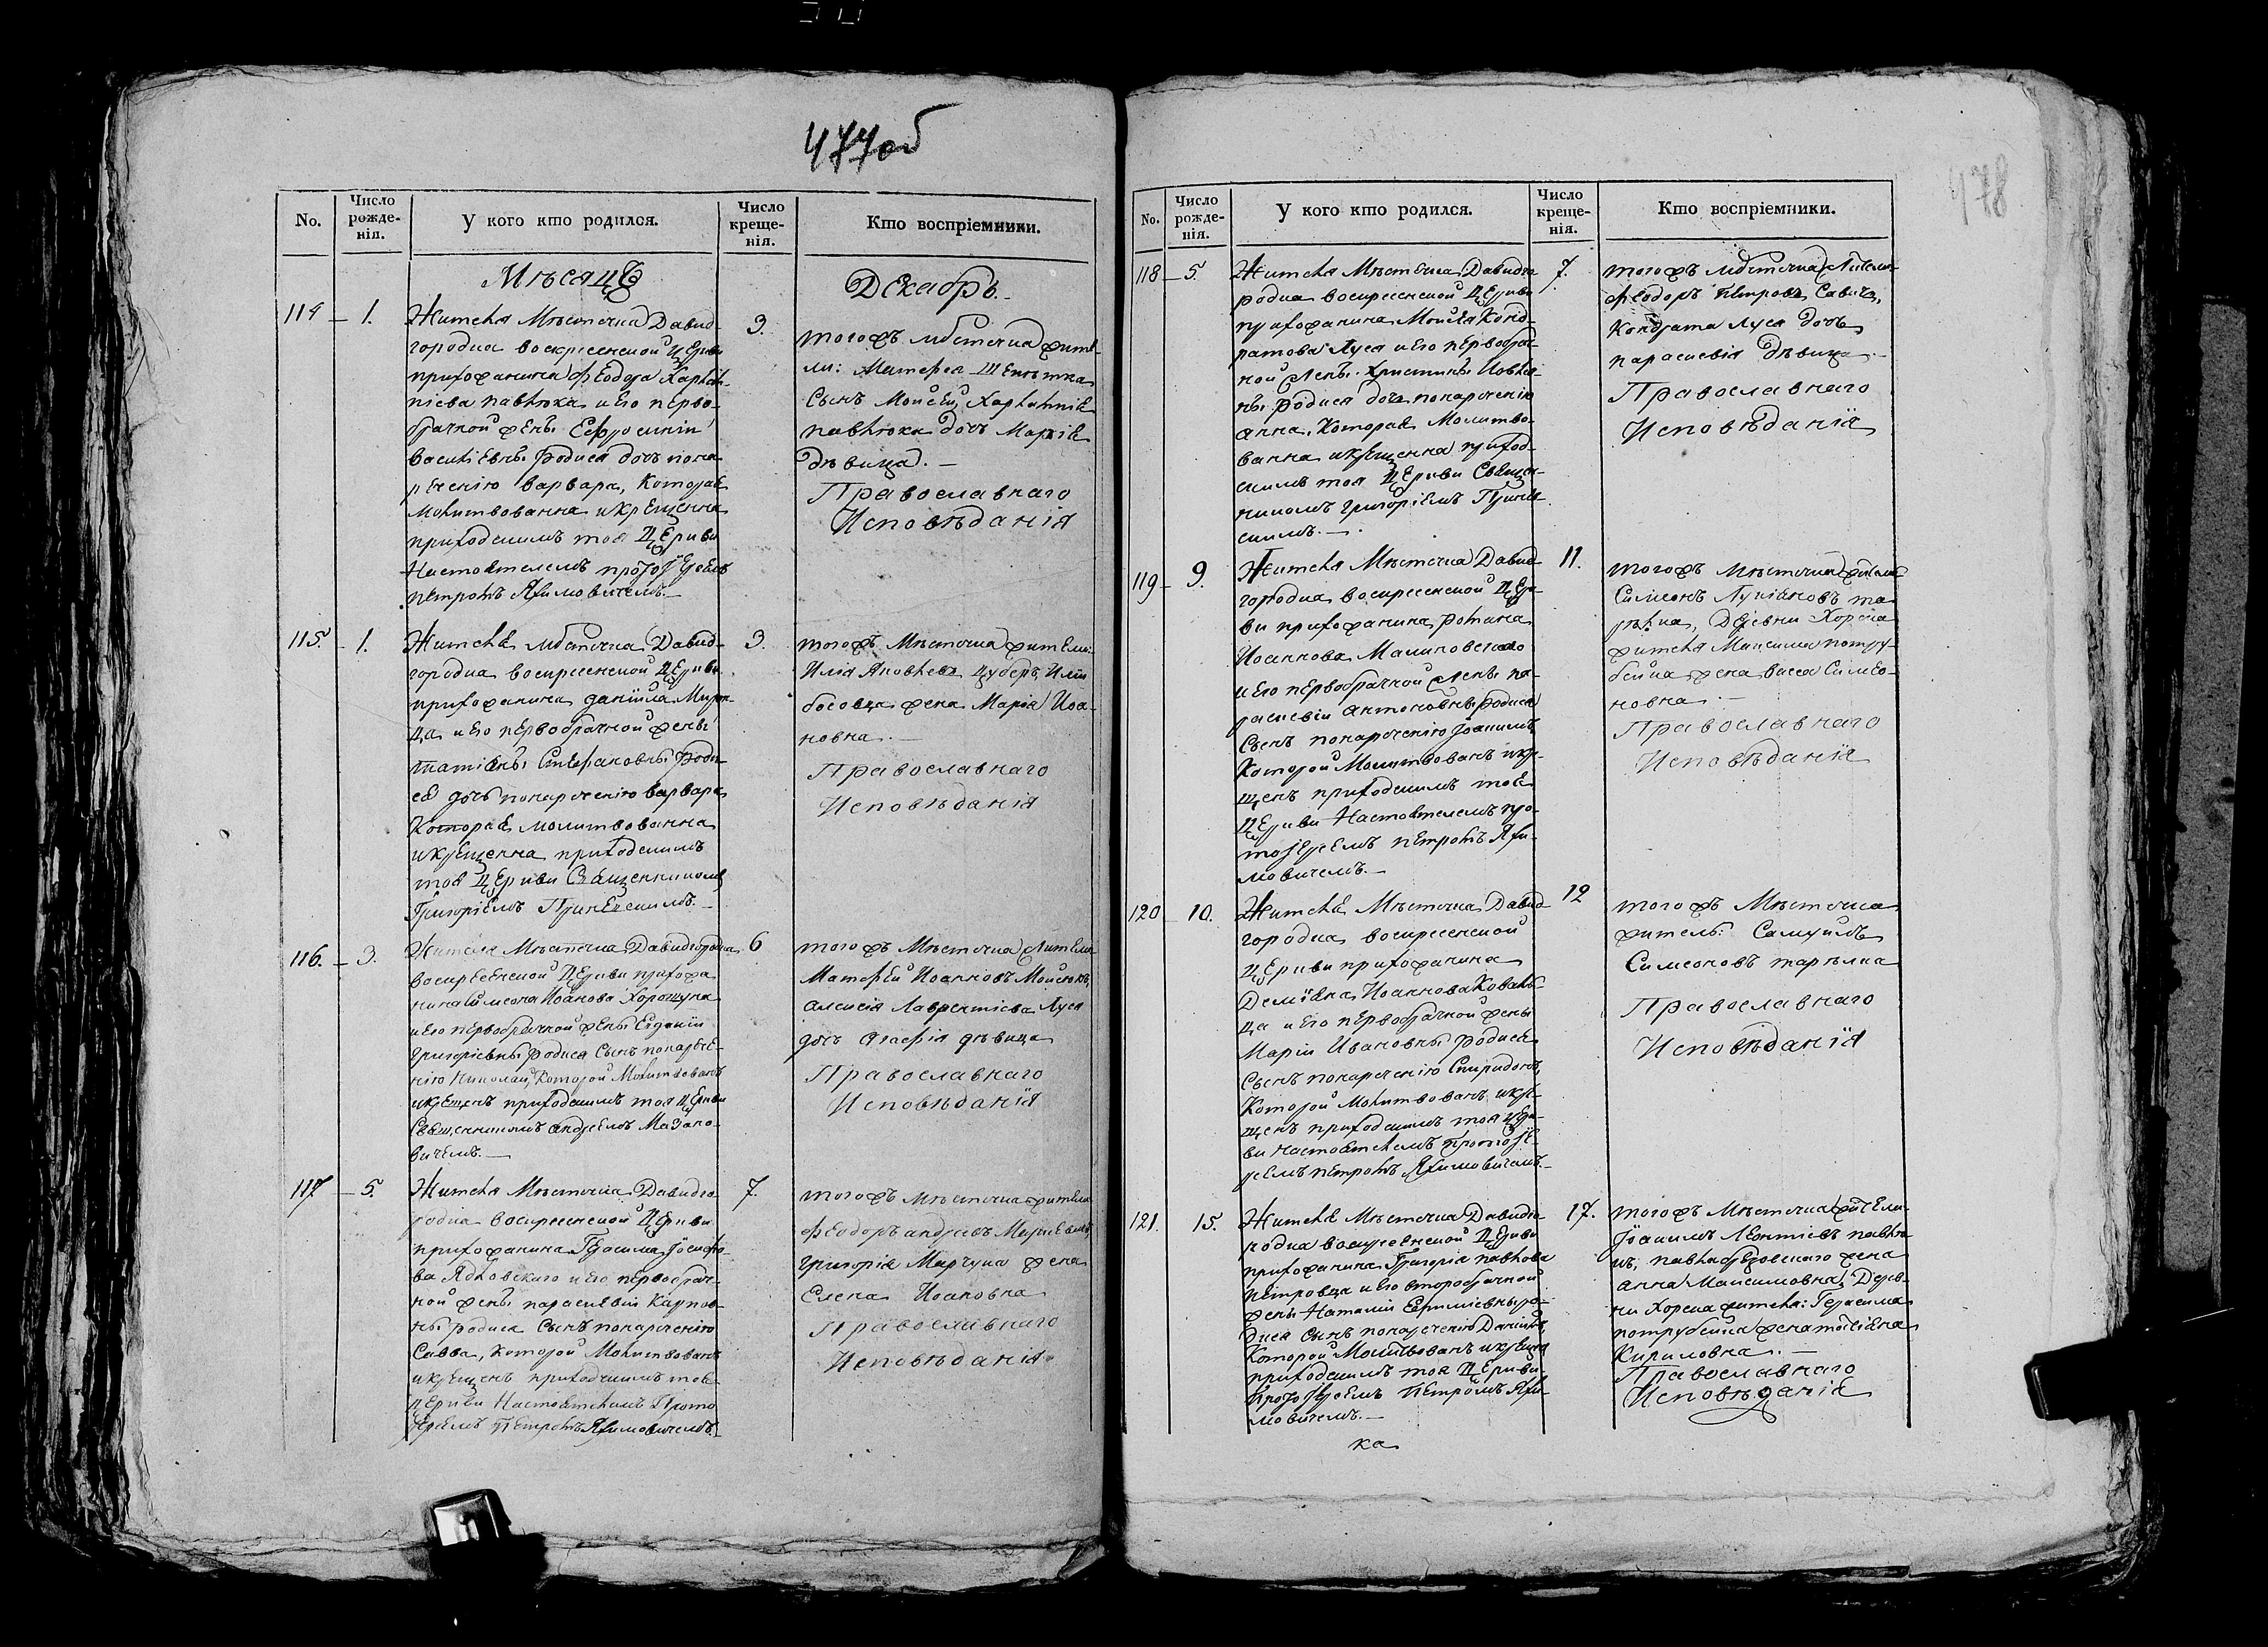 477об
No.
Число рожде-нія.
У кого кто родился.
Число креще-нія.
Кто воспріемники.
Мѣсяцъ
Декабрь.
114 1. 3.
Жителя Мѣстечка Давид-
городка воскресенской Церкви
прихожанина Феодора
павлюка и его перво-
брачной жены Ефросиніи
василіевны родися дочь пона
реченію варвара, которая
молитвованна и крещенна
приходскимъ тоя Церкви
Настоятелемъ протоіереемъ
петромъ Якимовичемъ.—
тогожъ мѣстечка жите-
ли: Матфея
Сынъ Моисей,
павлюка дочь Марія
дѣвица.—
Православнаго
Исповѣданія
115. 1. 3.
Жителя мѣстечка Давид-
городка воскресенской Церкви
прихожанина даніила
ца и его первобрачной жены
татіаны Стефановны роди-
ся дочь понареченію варвара
Которая молитвованна
и крещенна приходскимъ
тоя Церкви Священникомъ
Григоріемъ
тогожъ Мѣстечка жители:
Илія Яковлевъ
жена Марія Иоа-
новна.—
Православнаго
Исповѣданія
116. 3. 6
Жителя Мѣстечка Давидгородка
воскресенской Церкви прихожа
нина Симеона Иоанова Хорощука
и его первобрачной жены Евдокіи
григоріевны родися Сынъ понарече-
нію Николай, Которой Молитвованъ
и крещенъ приходскимъ тоя Церкви
Священникомъ андреемъ Мазано-
вичемъ.—
тогожъ Мѣстечка жители
Матфей Иоанновъ Мойсюкъ,
алексія Лаврентіева Луся
дочь агафія дѣвица
Православнаго
Исповѣданія
117 5. 7.
Жителя Мѣстечка Давидго
родка воскресенской Церкви
прихожанина Герасима Іосифо-
ва Ядковскаго и его первобрач-
ной жены параскевіи Карпов-
ны родися Сынъ понареченію
Савва, Которой Молитвованъ
и крещенъ приходскимъ тоя
Церкви Настоятелемъ Прото
іереемъ Петромъ Якимовичемъ.
тогожъ Мѣстечка жители
Феодоръ андреевъ
григорія Марчука жена
Елена Иоановна
Православнаго
Исповѣданія
478
No.
Число рожде-нія.
У кого кто родился.
Число креще-нія.
Кто воспріемники.
118 5. 7.
Жителя Мѣстечка Давидго
родка воскресенской Церкви
прихожанина Моисея Конд-
ратова Луся и его первобрач-
ной жены Христины Иовлев-
ны родися дочь понареченію
анна, Которая Молитво-
ванна и крещенна приход-
скимъ тоя Церкви Священ-
никомъ григоріемъ
скимъ.—
тогожъ мѣстечка жители
Феодоръ Петровъ Савичъ,
Кондрата Луся дочь
параскевія дѣвица.—
Православнаго
Исповѣданія
119 9. 11.
Жителя Мѣстечка Давид
городка воскресенской Церк-
ви прихожанина романа
Иоаннова Малиновскаго
и его первобрачной жены па-
раскевіи антоновны родися
Сынъ понареченію Іоакимъ,
Которой Молитвованъ и кре-
щенъ приходскимъ тоя
Церкви Настоятелемъ про-
тоіереемъ петромъ Яки-
мовичемъ.—
тогожъ Мѣстечка жители
Симеонъ Лукіановъ та
рѣлка, Деревни Хорска
жителя Максима потру-
бейка жена васса Симео-
новна.—
Православнаго
Исповѣданія
120 10. 12
Жителя Мѣстечка Давид-
городка воскресенской
Церкви прихожанина
Деміяна Иоаннова Коваль-
ца и его первобрачной жены
Маріи Ивановны родися
Сынъ понареченію Спиридонъ,
Которой Молитвованъ и кре-
щенъ приходскимъ тоя Церк-
ви настоятелемъ Протоіе-
реемъ петромъ Якимовичемъ.—
тогожъ Мѣстечка
житель: Самуилъ
Симеоновъ тарѣлка
Православнаго
Исповѣданія
121. 15. 17.
Жителя Мѣстечка Давидго-
родка воскресенской Церкви
прихожанина Григорія павлова
петровца и его второбрачной
жены Наталіи Евфиміевны ро-
дися Сынъ понареченію Даніилъ,
Которой Молитвованъ и крещенъ
приходскимъ тоя Церкви
Протоіереемъ Петромъ Яки-
мовичемъ.—
тогожъ Мѣстечка жители
Іоакимъ Леонтіевъ павлю
къ, павла жена
анна Максимовна, Дерев-
ни Хорска жителя: Герасима
потрубейка жена татіяна
Кириловна.—
Православнаго
Исповѣданія
ка